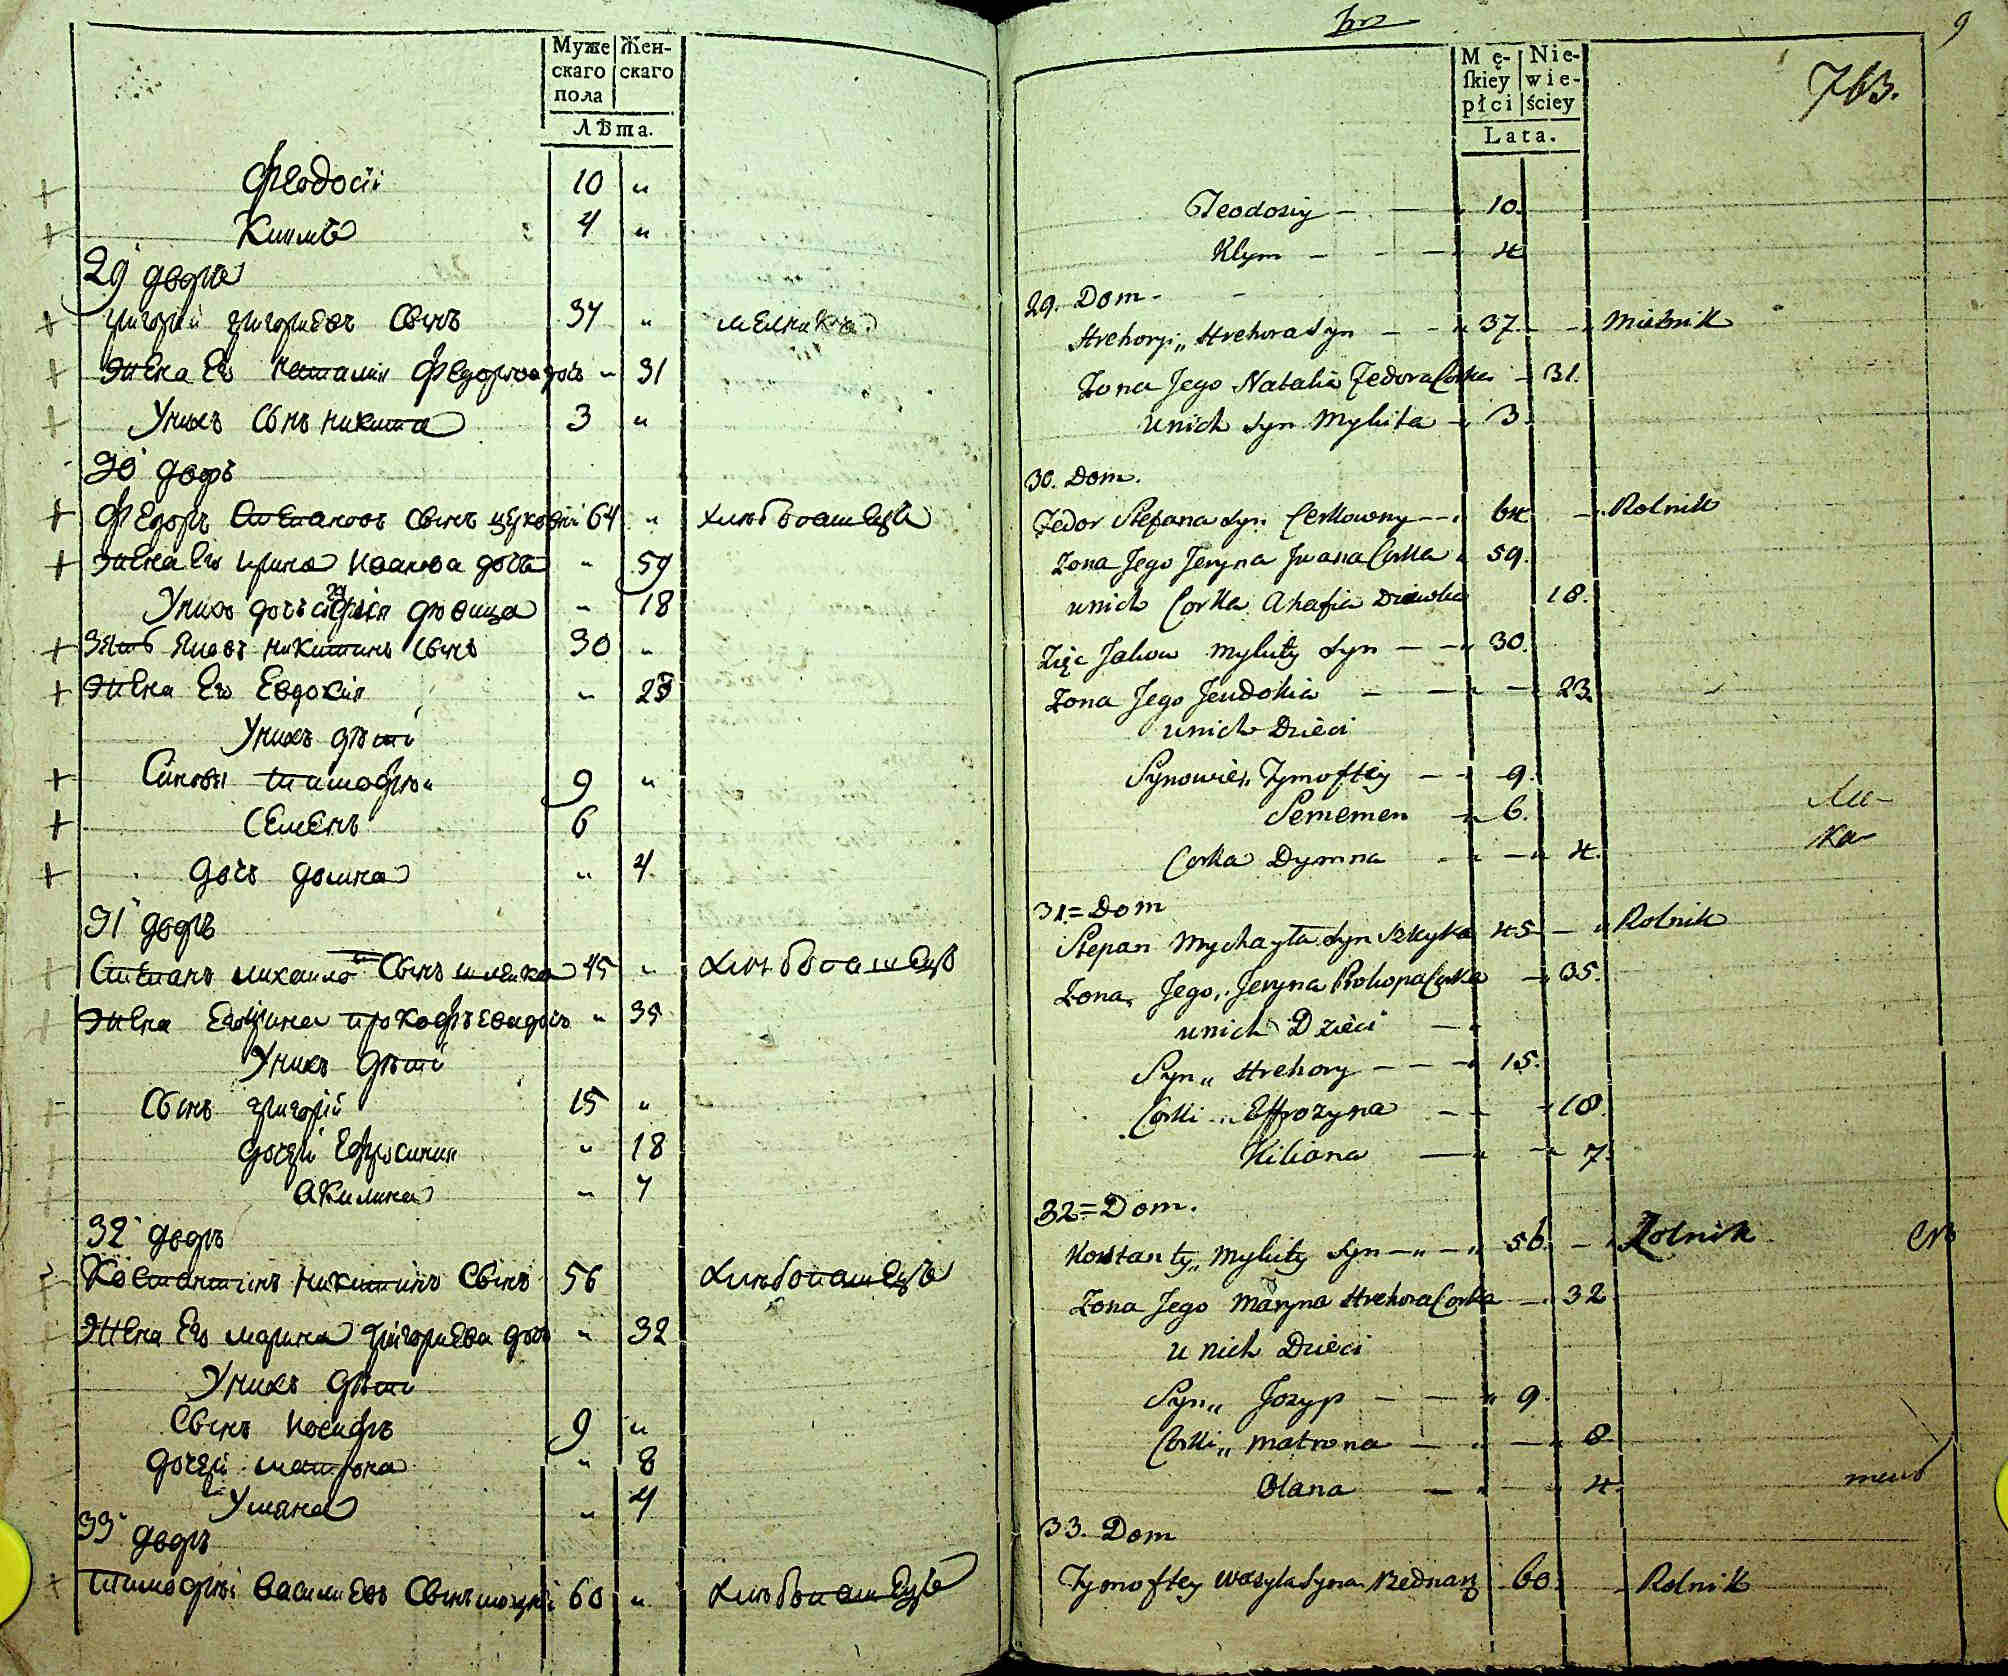 Муже Жен-
скаго скаго
пола
Лѣта.
Феодосіи 10 "
Климъ 4 "
29 дворъ
григорий григориевъ Сынъ 37 " мелникъ
жена Его наталия Федорова дочь " 31
Унихъ Сынъ никита 3 "
30 дворъ
Федоръ Степановъ Сынъ церковні 64 " хлѣбопашецъ
жена Его ирина Иванова дочь " 59
Унихъ дочь дѣвица " 18
Зять Яковъ никитинъ Сынъ 30 "
жена Его Евдокия " 23
Унихъ дѣти
Синовя тимофѣи 9 "
Семенъ 6
дочь домна " 4
31 дворъ
Степанъ михайловъ Сынъ 45 " хлѣбопашецъ
жена Его ирина прокофъева дочь " 35
Унихъ дѣти
Сынъ григорій 15 "
дочери Ефросиния " 18
Акилина " 7
32 дворъ
Костантинъ никитинъ Сынъ 56 хлѣбопашецъ
жена Его марина григориева дочь " 32
Унихъ дѣти
Сынъ иосифъ 9 "
дочери матрона " 8
Улияна " 4
33 дворъ
тимофѣі васильевъ Сынъ 60 " хлѣбопашецъ
9
Mę- Nie-
ſkiey wie-
płci ściey
Lata.
763.
Teodoziy 10.
Klym 4
29. Dom.
Hrehoryi „ Hrehora Syn 37. Mielnik
Zona Jego Natalia Fedora Corka 31.
unich Syn Mykita 3.
30. Dom.
Fedor Stefana Syn Cerkowny 64 Rolnik
Zona Jego Jeryna Jwana Corka 59.
unich Corka Ahafia Dziewka 18.
Zięc Jakow Mykity Syn 30.
Zona Jego Jeudokia 23.
unich Dzieci
Synowie „ Tymoftey 9.
Sememen 6.
Corka Dymna 4.
31 = Dom
Stepan Mychayła Syn Szkyka 45 Rolnik
Zona Jego Jeryna Prokopa Corka 35.
unich Dzieci
Syn „ Hrehory 15.
Corki „ Effrozyna 18.
Kiliana 7.
32 = Dom.
Kostanty „ Mykity Syn 56. Rolnik
Zona Jego Maryna Hrehora Corka 32
u nich Dzieci
Syn „ Jozyp 9.
Corki „ Matrona 8
Olana 4.
33. Dom
Tymoftey Wasyla Syna Bednarz 60. Rolnik